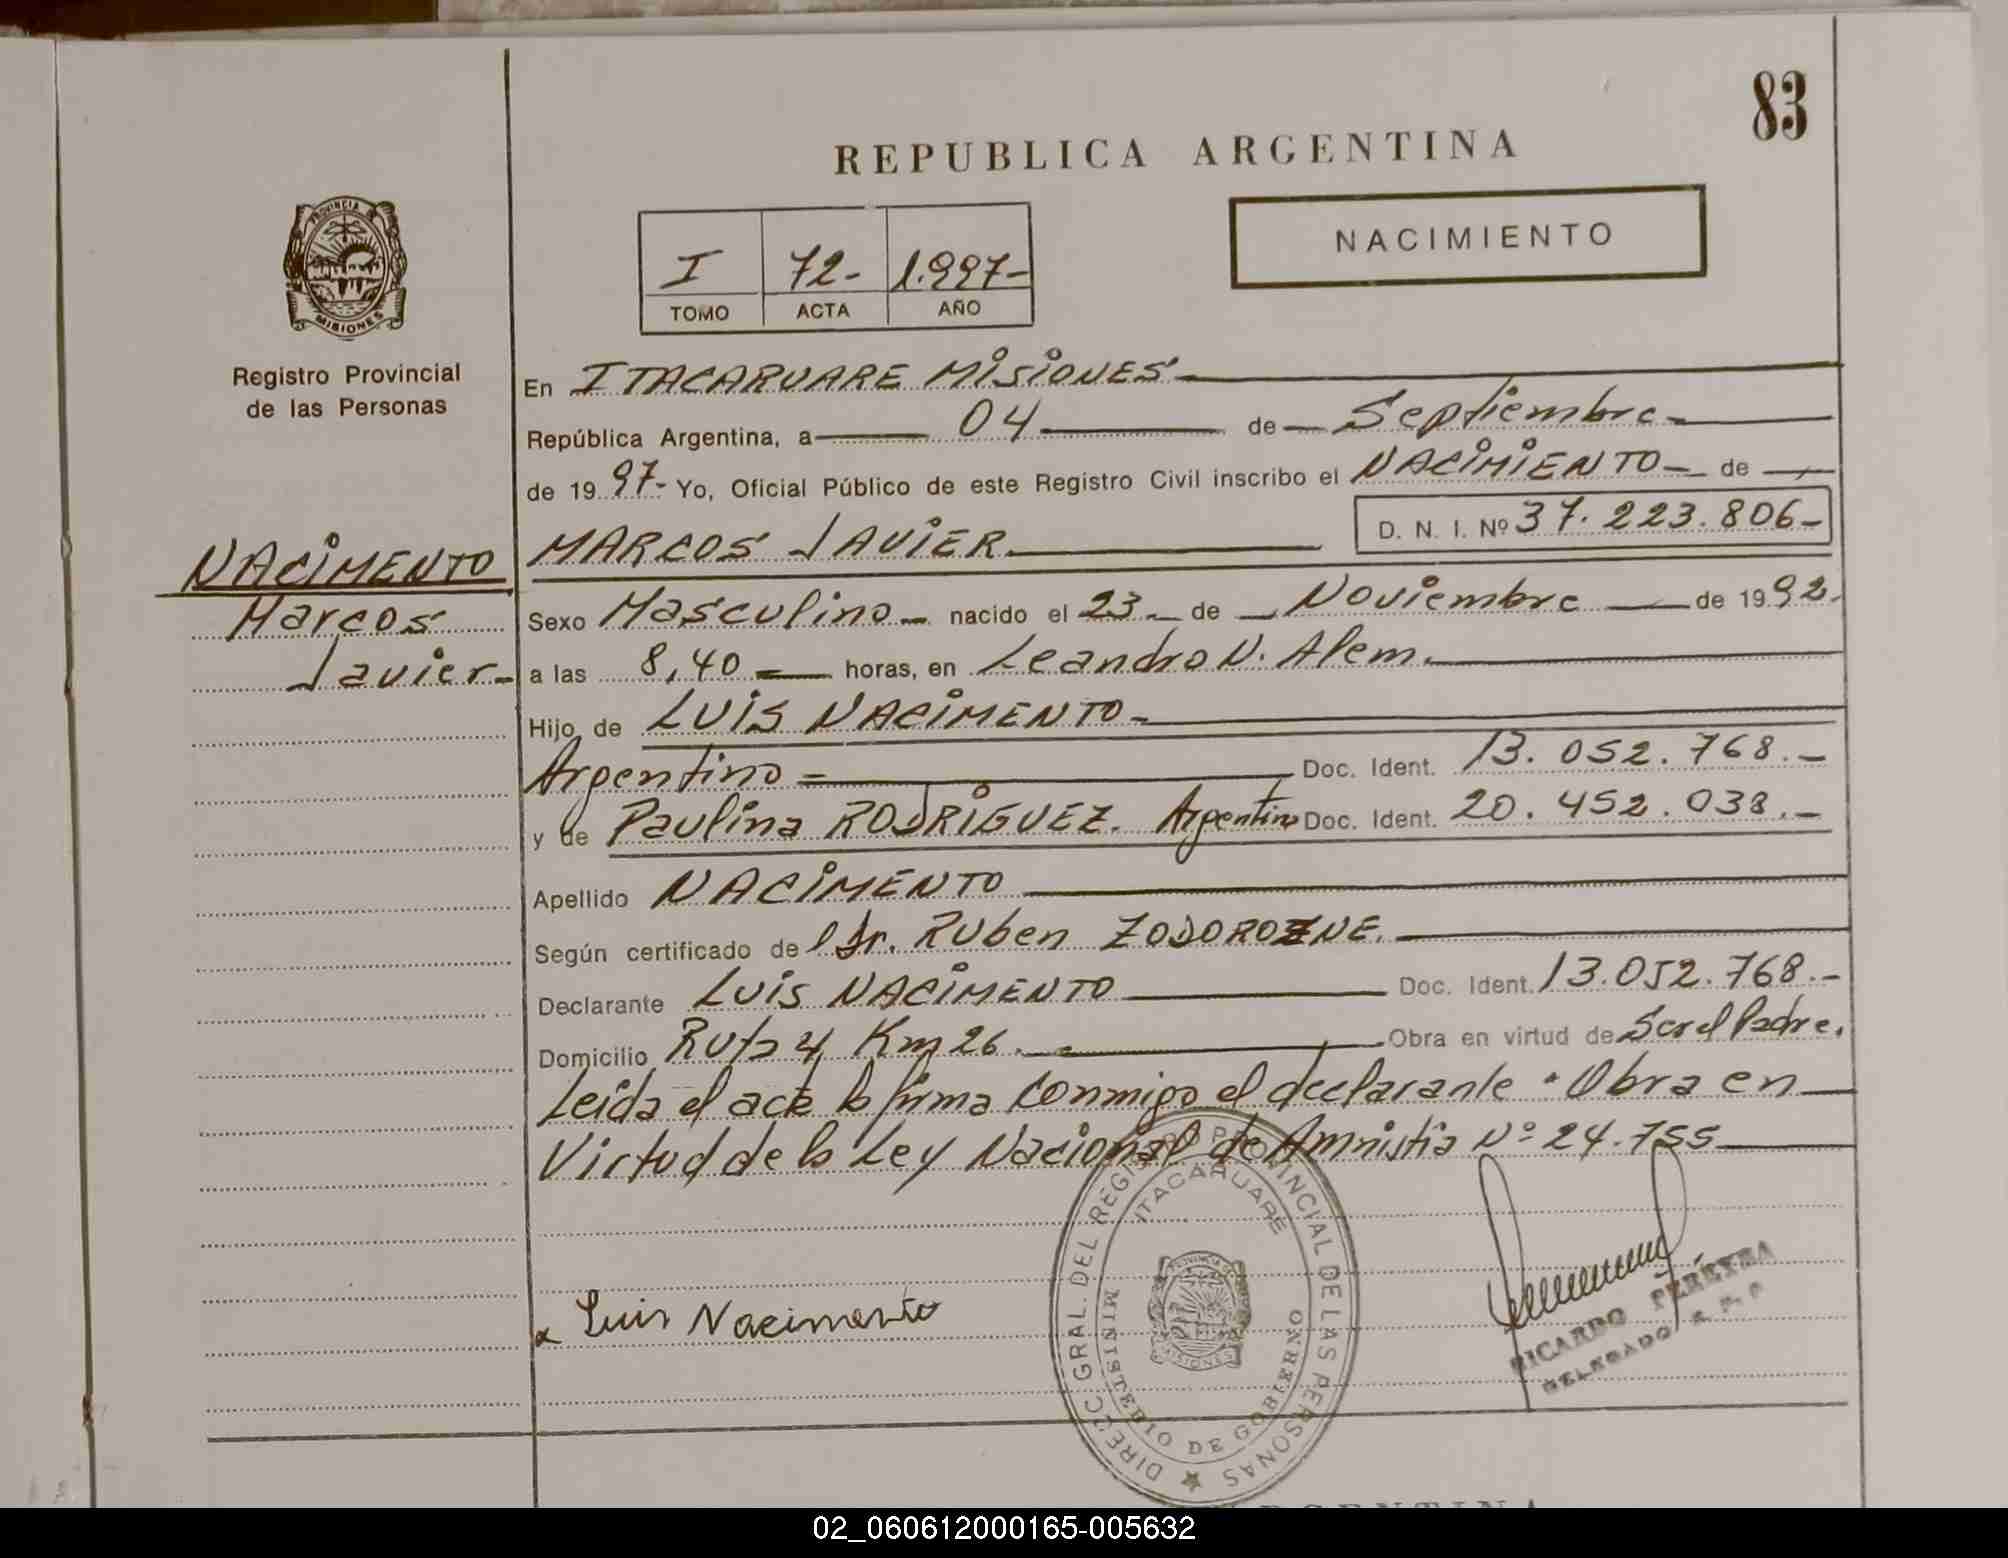 83
REPUBLICA ARGENTINA
PROVINCIA DE
MISIONES
Registro Provincial
de las Personas
I 72- 1.997-
TOMO ACTA AÑO
NACIMIENTO
En ITACARUARE MISIONES
República Argentina, a 04 de Septiembre
de 1997- Yo, Oficial Público de este Registro Civil inscribo el NACIMIENTO de
NACIMENTO MARCOS JAVIER D. N. I. Nº 37.223.806-
Marcos Sexo Masculino nacido el 23 de Noviembre de 1992.
Javier- a las 8,40 horas, en Leandro N. Alem.
Hijo de LUIS NACIMENTO-
Argentino Doc. Ident. 13.052.768.-
y de Paulina RODRIGUEZ. Argentina Doc. Ident. 20.452.038.-
Apellido NACIMENTO
Según certificado de Dr. Ruben ZODOROZNE.
Declarante LUIS NACIMENTO Doc. Ident. 13.052.768.-
Domicilio Ruta 4 Km 26. Obra en virtud de Ser el Padre.
Leida el acta la firma conmigo el declarante. Obra en
Virtud de la Ley Nacional de Amnistia Nº 24.755
DIRECC GRAL. DEL REGISTRO PROVINCIAL DE LAS PERSONAS
ITACARUARE
MINISTERIO DE GOBIERNO
PROVINCIA DE
MISIONES
Luis Nacimento
RICARDO PEREYRA
DELEGADO R. P. P
ARGENTINA
02_060612000165-005632